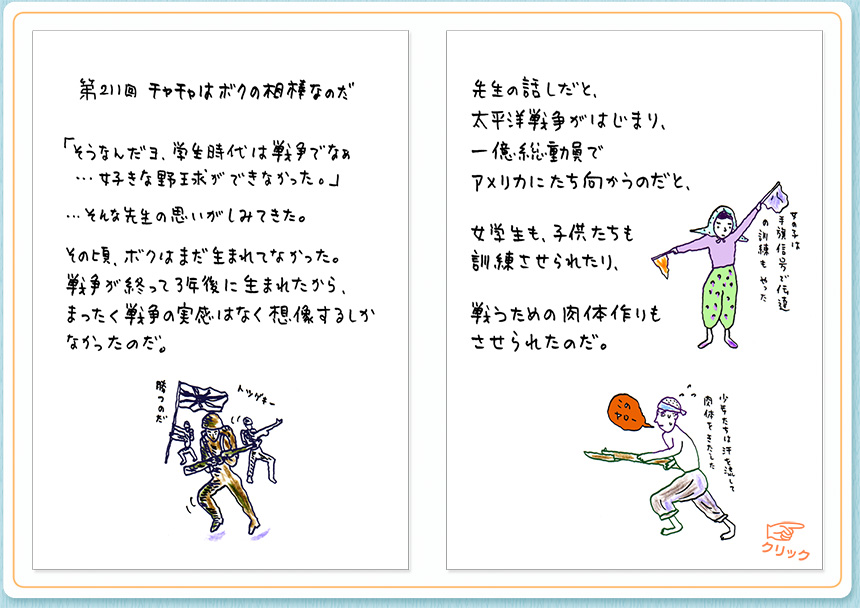 第211回 チャチャはボクの相棒なのだ
「そうなんだヨ、学生時代は戦争でなぁ
…好きな野球ができなかった。」
…そんな先生の思いがしみてきた。
その頃、ボクはまだ生まれてなかった。
戦争が終って3年後に生まれたから、
まったく戦争の実感はなく想像するしか
なかったのだ。
勝つのだ
トツゲキー
先生の話しだと、
太平洋戦争がはじまり、
一億総動員で
アメリカにたち向かうのだと、
女学生も、子供たちも
訓練させられたり、
戦うための肉体作りも
させられたのだ。
女の子は
手旗信号で伝達
の訓練もやった
この
ヤロー
少年たちは汗を流して
肉体をきたえた
クリック